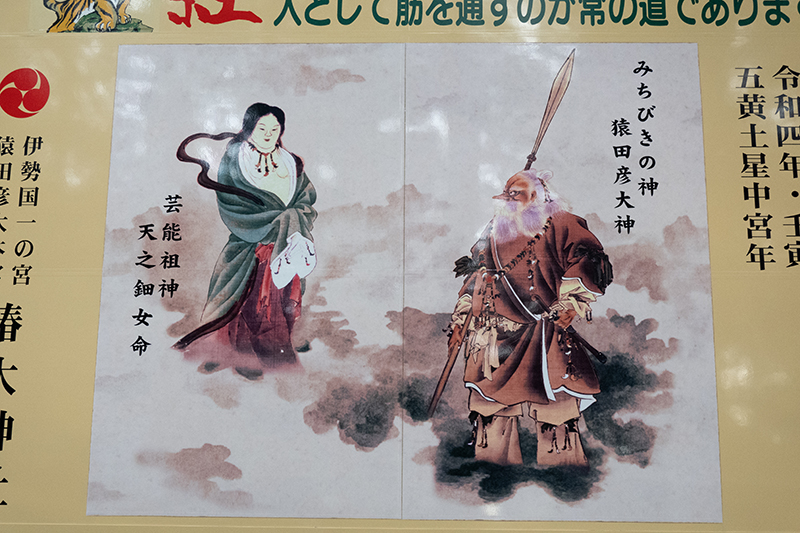 人として筋を通すのが常の道であります
令和四年・壬寅
五黄土星中宮年
みちびきの神
猿田彦大神
芸能祖神
天之鈿女命
伊勢国一の宮
猿田彦大本宮
椿大神社